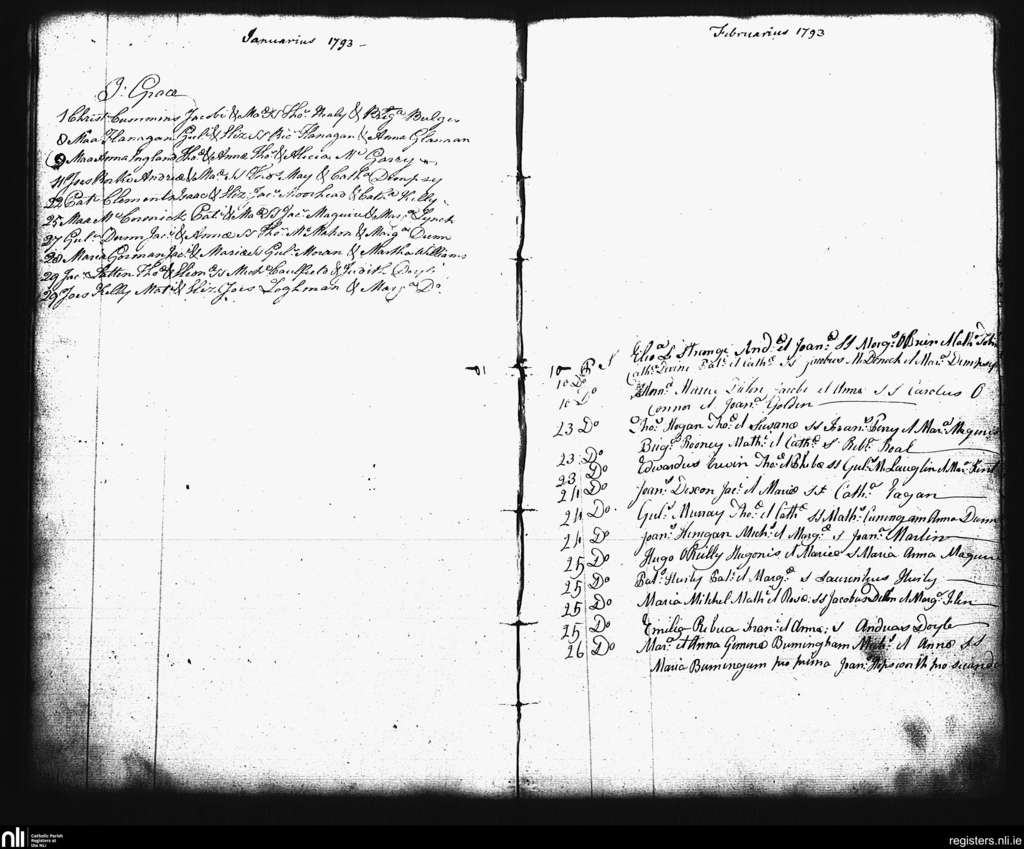 Januarius 1793
J: Grace
1 Christ Cummins Jacobi & Ma: SS Tho: Healy & Brig:a Bulger
8 Maa Flanagan Gul: & Eliz SS Ric Flanagan & Anna Glannan
9 Maa Anna England Tho: & Annæ Tho: & Alicia Mc Garry
11 Joes Andreæ & Ma: SS May & Cath:a Dempsey
22 Pat: Clements Isaac & Eliz: Jac: Moorhead & Cath:a Kelly
25 Maa Mc Cormick Pat: & Ma: SS Jac: Maguire & Mar:a Lynch
27 Gul: Dunn Jac: & Annæ SS Tho: McMahon & Marg:a Dunn
28 Maria Gorman Jac: & Mariæ SS Gul: Moran & Martha Williams
29 Jac: Tho: & Elean: SS Caulfield & Judith Doyle
29 Joes Kelly Mat: & Eliz. Joes Loghman & Marg:a Do.
Februarius 1793
10 P S Strange And: et Joan:æ SS Morg:s OBrien Math: Tobin
10 Do Cath: Pat: et Cath:æ SS Jacobus McDonek et Mar:a Dempsey
10 Do Maria Dillon Jacobi et Annæ SS Carolus O
Connor et Joan:a Golden
23 Do Tho:s Hogan Tho:æ et Susanæ SS Fran:s Perry et Mar:a Maguire
23 Do Brig:a Rooney Math: et Cath:æ S Reb:a Roal
23 Do Edwardus Erwin Tho:æ et Phebæ SS Gul:s McLauglin et Mar:a
24 Do Joan:s Dixon Jac:i et Mariæ SS Cath:a Fagan
24 Do Gul:s Murray Tho:æ et Cath:æ SS Math:s Cuningam Anna Dunn
24 Do Joan:s Finegan Mich:s et Marg:æ S Joan:s Martin
25 Do Hugo OReilly Hugonis et Mariæ S Maria Anna Maguire
25 Do Pat:s Huily Pat: et Marg:æ S Laurentius Huily
25 Do Maria Mitchel Math:i et Rosæ: SS Jacobus Dillon et Marg:a
25 Do Emilia Fran:i et Annæ: S Andreas Doyle
26 Do Mar:a et Anna Geminæ Bumingham Mich: et Annæ SS
Maria Bumingam pro prima Joan: pro secunda
nli
Catholic Parish
Registers at
the NLI
registers.nli.ie